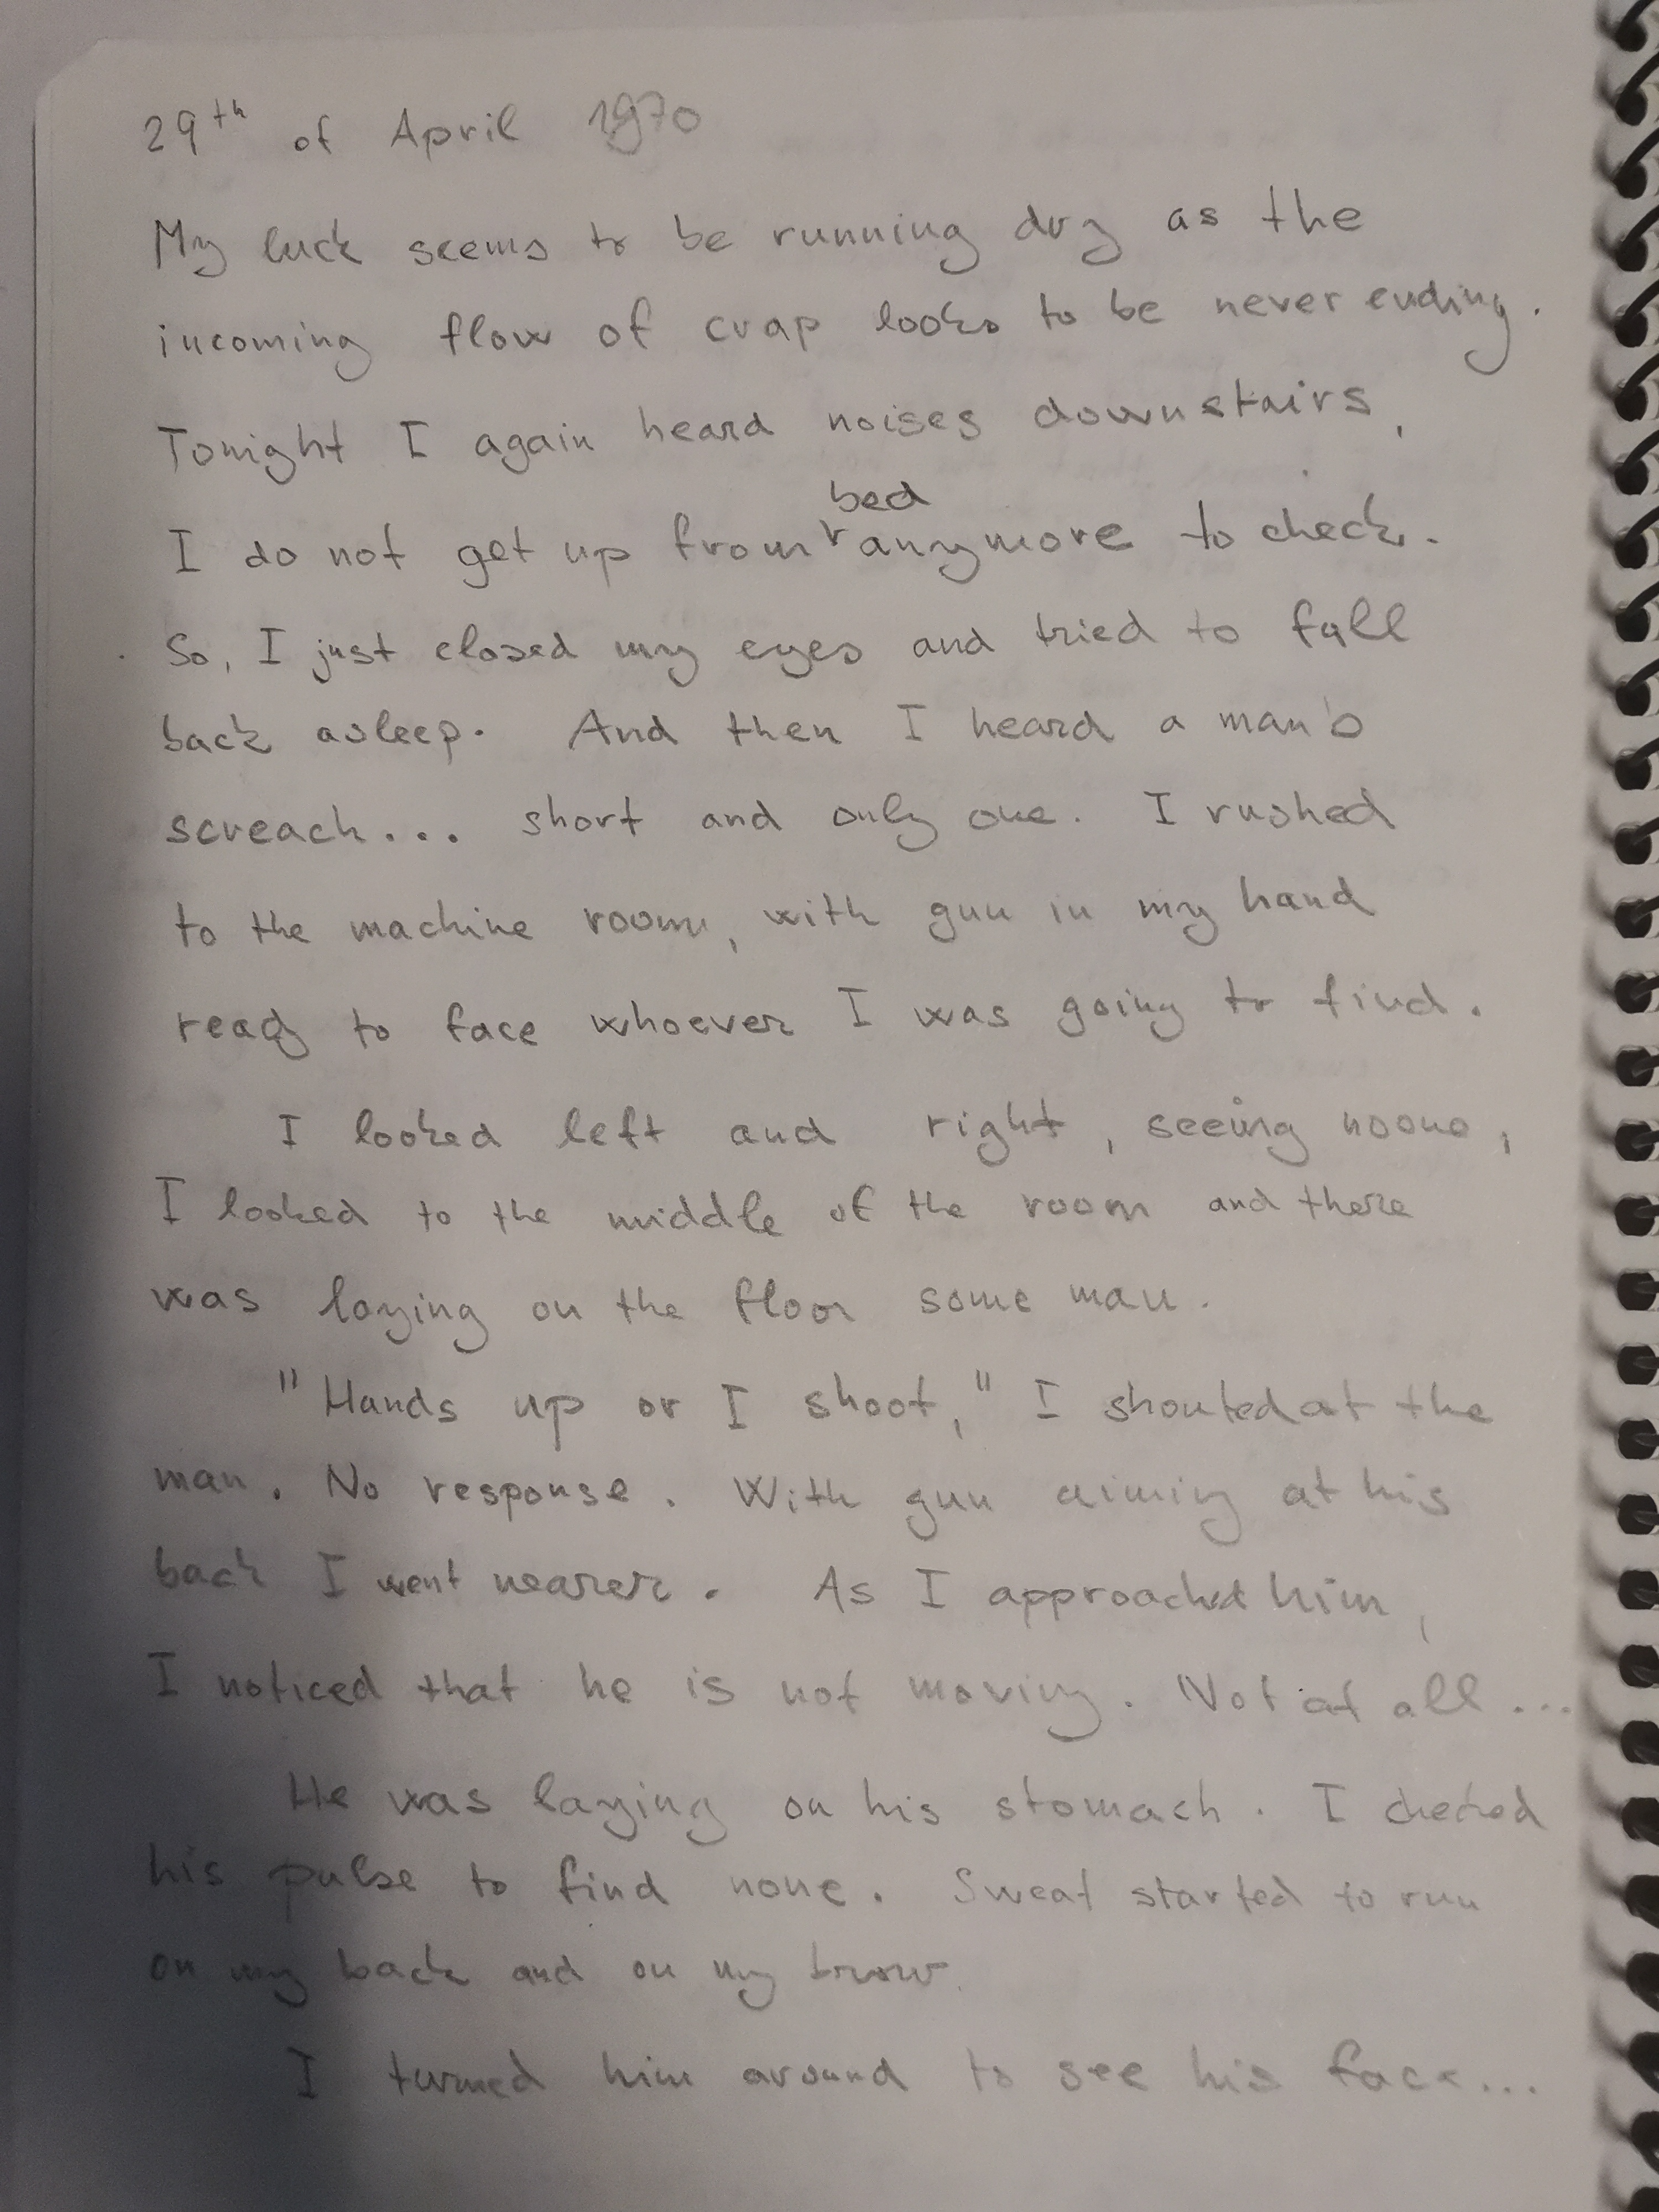 29th of April 1970
My luck seems to be running dry as the
incoming flow of crap looks to be never ending.
Tonight I again heard noises downstairs,
bed
I do not get up from anymore to check.
So, I just closed my eyes and tried to fall
back asleep. And then I heard a man's
screach... short and only one. I rushed
to the machine room, with gun in my hand
ready to face whoever I was going to find.
I looked left and right, seeing noone,
I looked to the middle of the room and there
was laying on the floor some man.
"Hands up or I shoot," I shouted at the
man. No response. With gun aiming at his
back I went nearer. As I approached him,
I noticed that he is not moving. Not at all...
He was laying on his stomach. I checked
his pulse to find none. Sweat started to run
on my back and on my brow.
I turned him around to see his face...